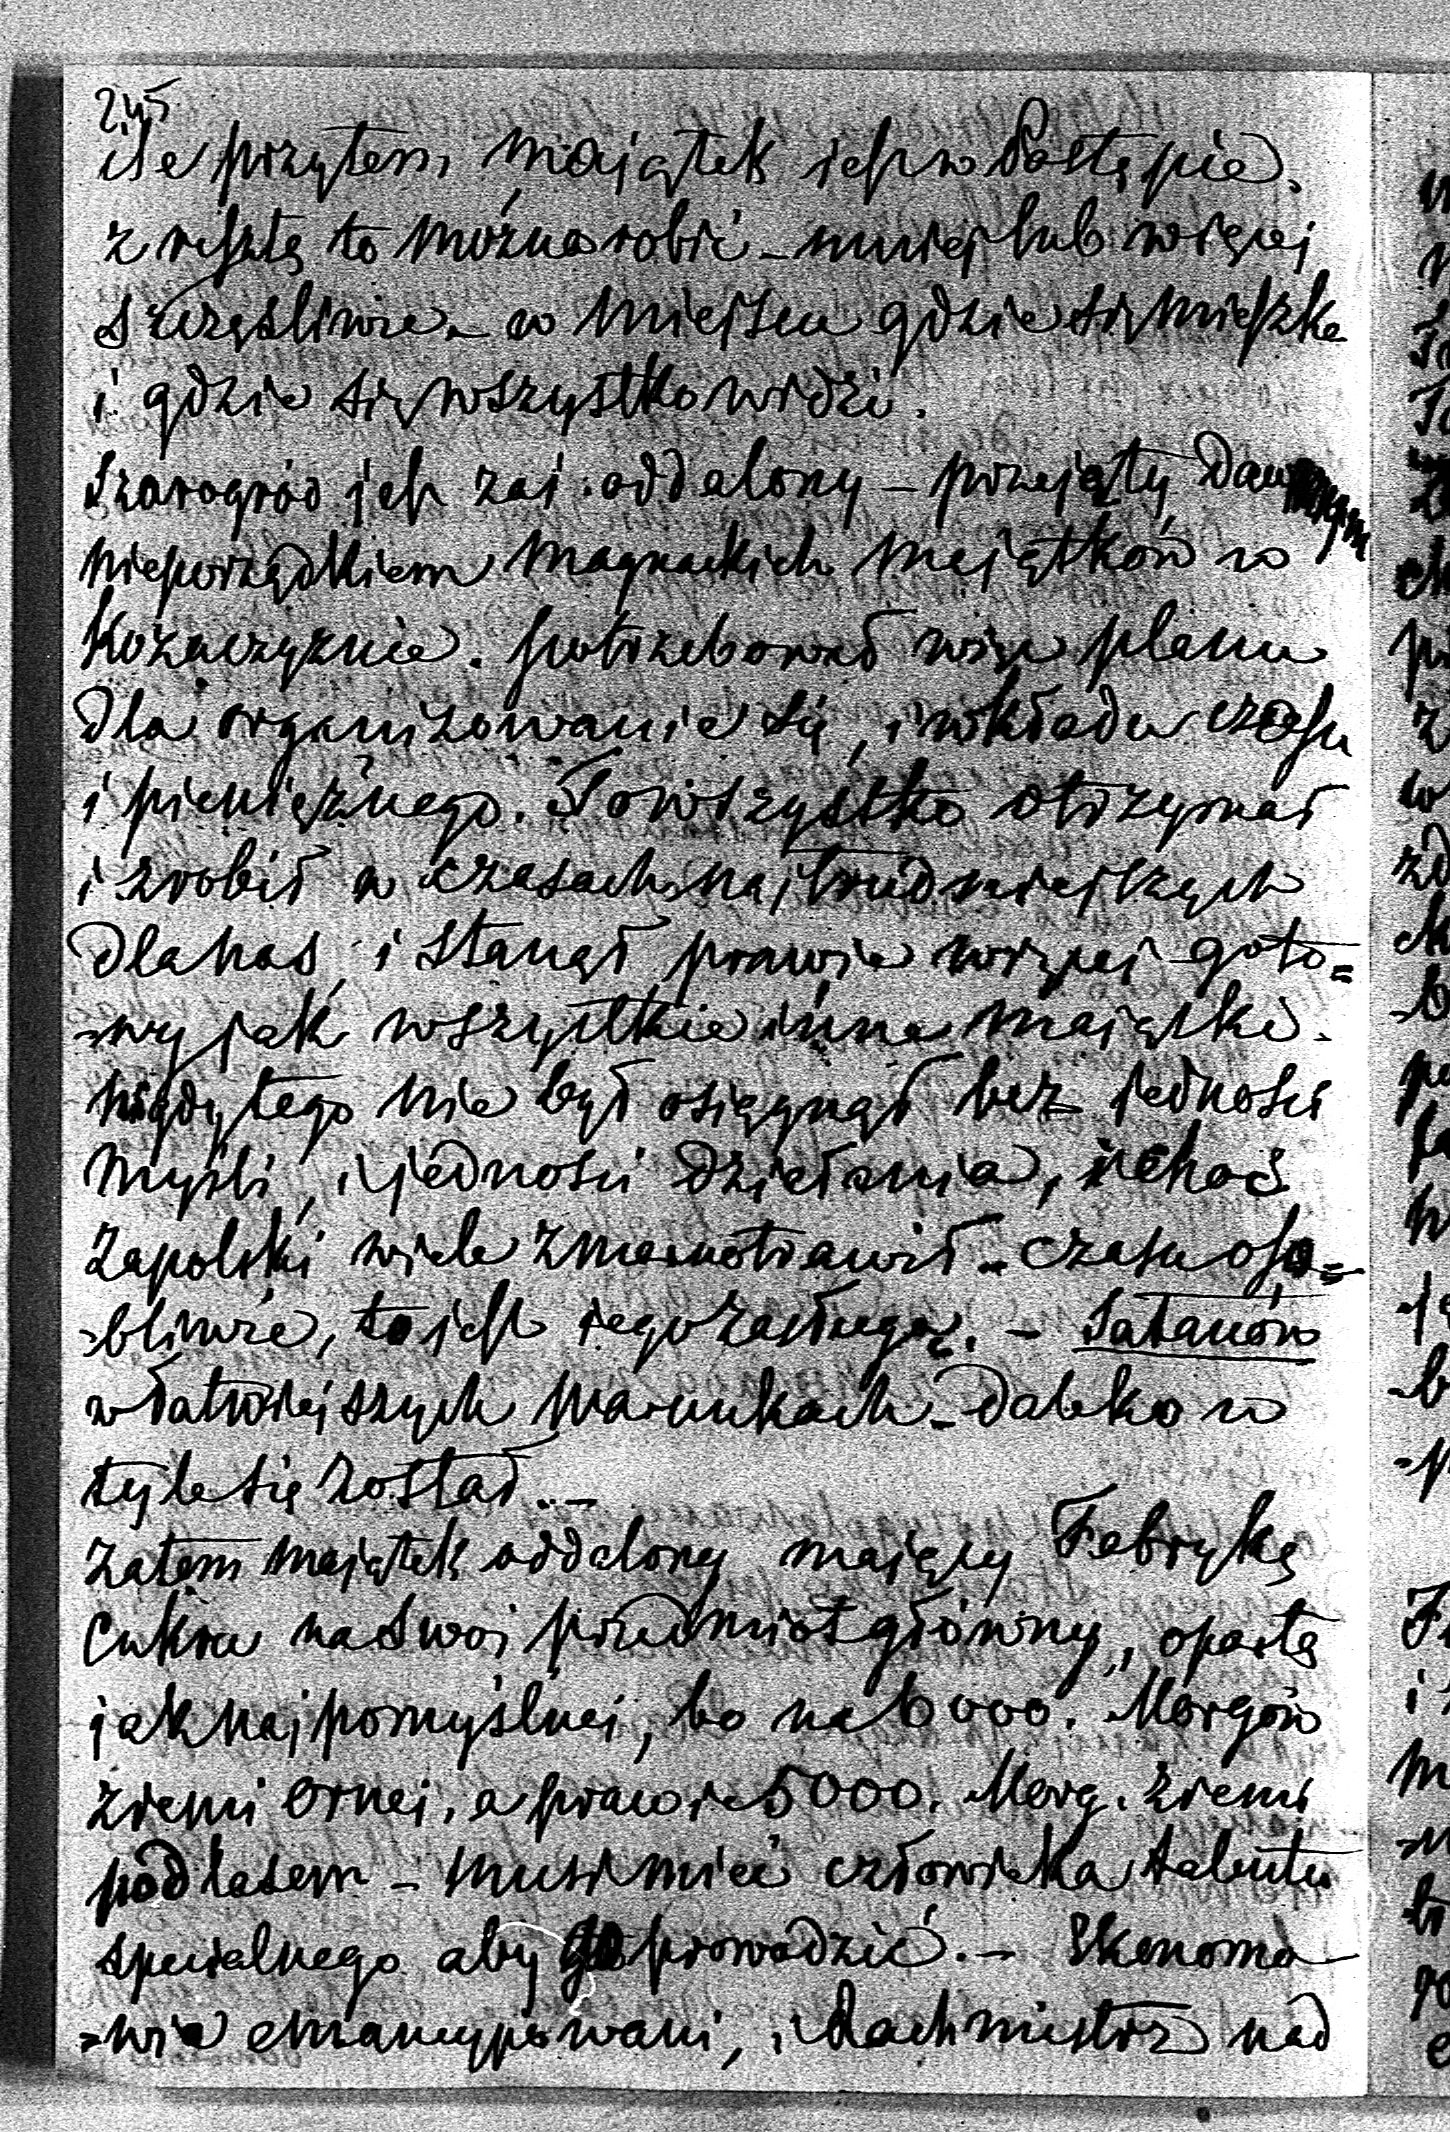 245
ile przytem majątek jest w Postępie.
z resztą to można robić – mniej lub więcej
szczęśliwie – w miejscu gdzie się mieszka
i gdzie się wszystko widzi.
Szarogród jest zaś oddalony – przejęty dawnym
nieporządkiem magnackich majątków w
Kozaczyznie. potrzebował więc planu
dla organizowania się, i wkładu czasu
i pieniężnego. To wszystko otrzymał
i zrobił w czasach najtrudniejszych
dla nas, i stanął prawie więcej goto=
=wy jak wszystkie inne majątki.
nigdy tego nie był osiągnął bez jedności
myśli, i jedności działania, i choć
Zapolski wiele zmarnotrawił – czasu oso=
=bliwie, to jest jego zasługą. – Satanów
w łatwiejszych warunkach – daleko w
tyle się został. –
Zatem majątek oddalony mający Fabrykę
Cukru na swoi przedmiot główny, opartą
jak najpomyślnei, bo na 6000. Morgów
ziemi ornei, a prawie 5000. Morg. ziemi
pod lasem – musi mieć człowieka talentu
specialnego aby go prowadzić. – Ekonomo
=wie emancypowani, i Rachmistrz nad